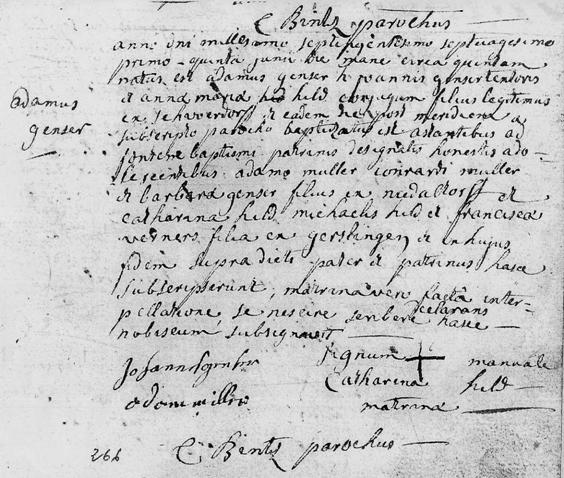 C Bentz parochus
anno dni millesimo septingentesimo septuagesimo
primo quinta junii die mane circa quintam
natus est adamus genser joannis genser textoris
adamus
genser
et anna maria held conjugum filius legitimus
ex schwerdorff et eadem die post meridiem a
subscripto parocho baptizatus est astantibus ad
fontem baptismi patrinis designatis honestis ado-
lescentibus adamo muller conrardi muller
et barbara genser filius ex niedaltorff et
catharina held michaelis held et francisca
verners filia ex gerstlingen et in hujus
fidem supradicti pater et patrinus hasce
subscripserunt, matrina vero facta inter-
pellatione se nescire scribere declarans hasce
nobiscum subsignavit
Johannes genser signum + manuale
Catharina held
adam miller matrina
266 C Bentz parochus